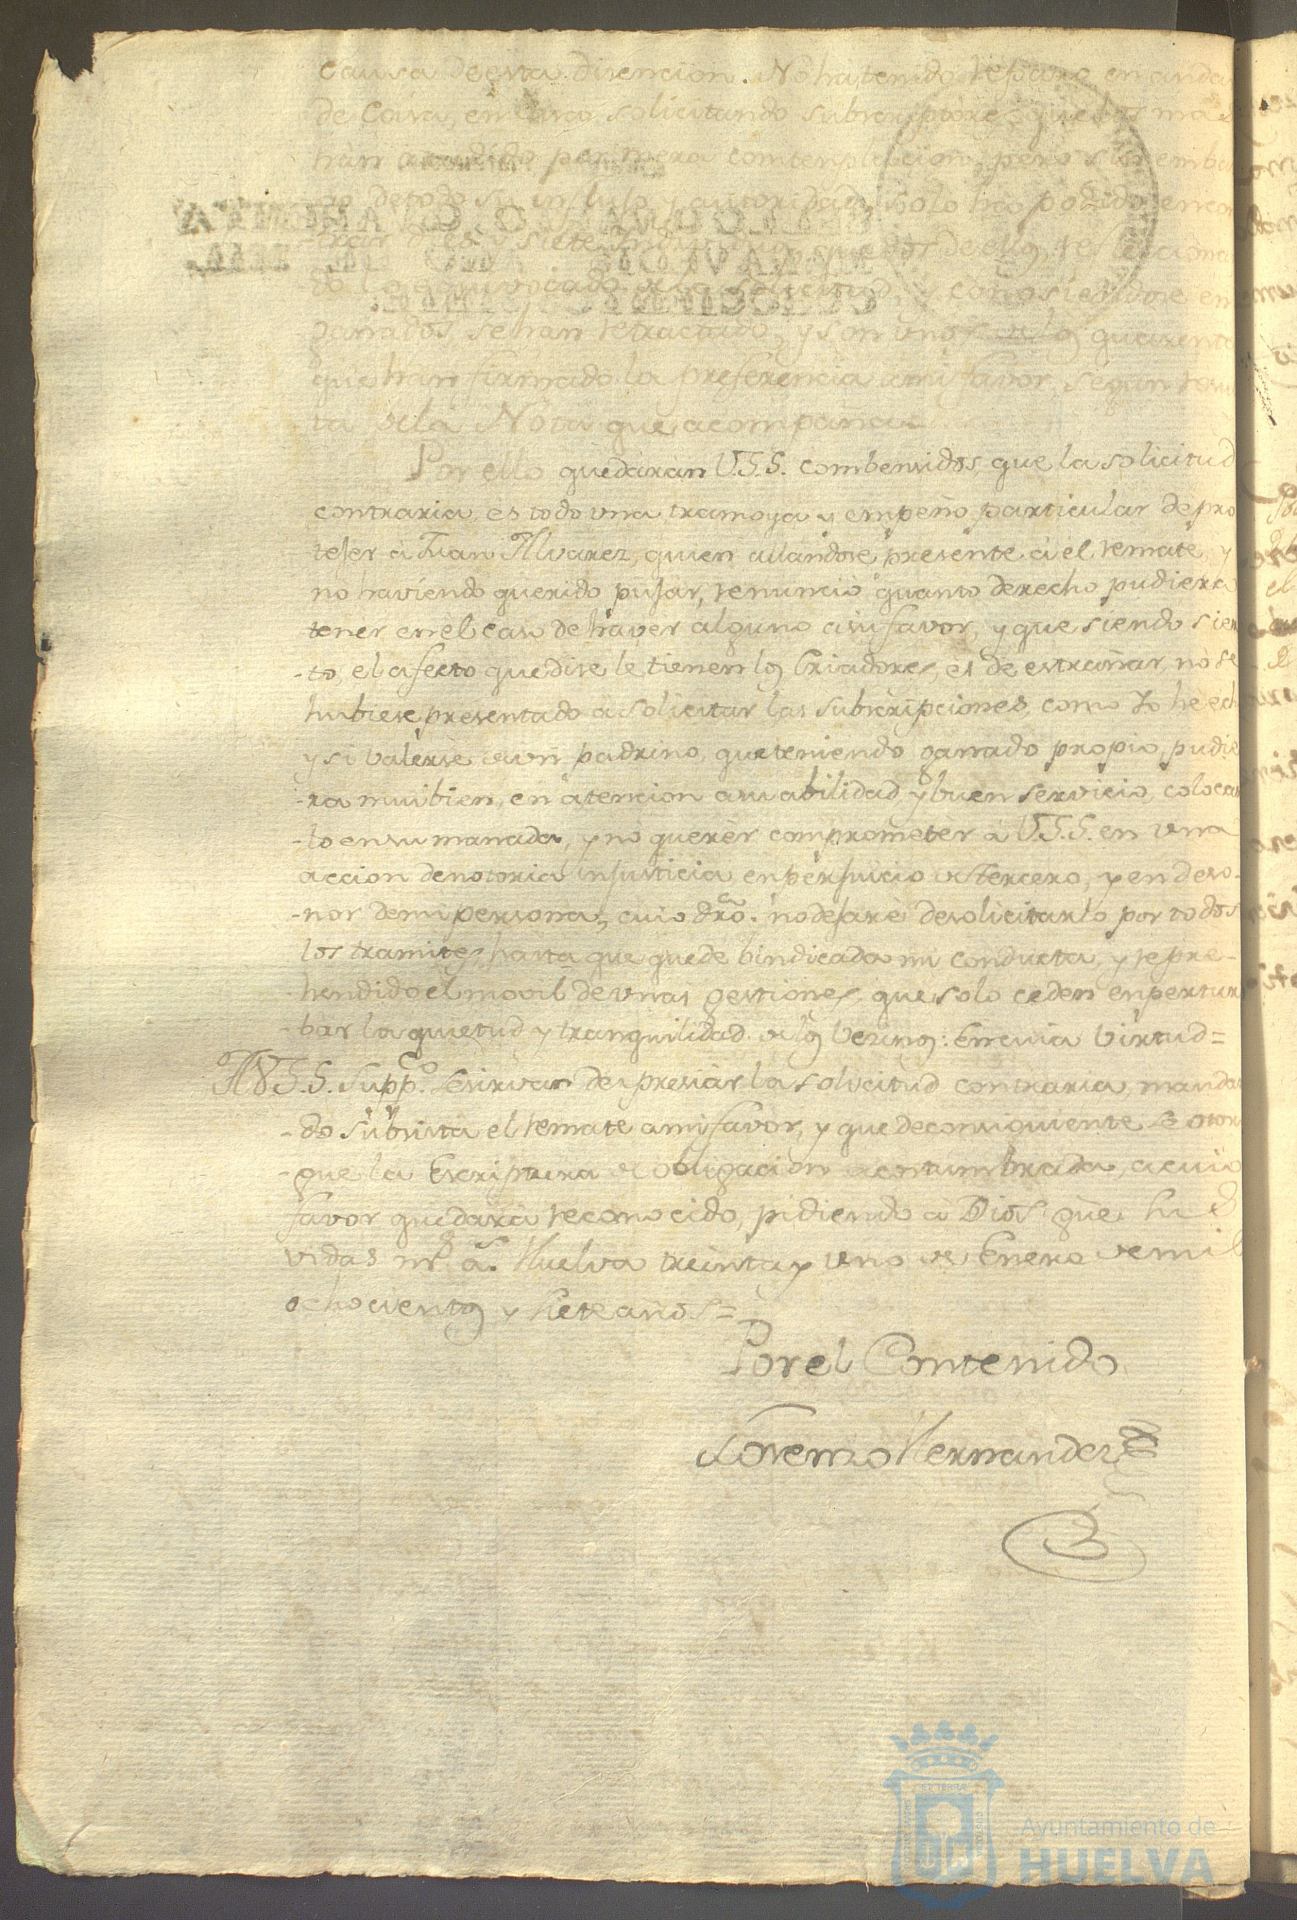 causa de esta disencion. No ha tenido reparo en anda
de Casa, en Casa, solicitando subscriptores, que los mas
han accedido por mera contemplacion, pero sin emba
go de todo su influjo y autoridad, solo ha podido encon
trar diez y siete Individuos, que dos de ellos,
do lo equivocado de la solicitud, y conosiendose en
gañados, se han retractado, y son unos de los quarenta
que han firmado la preferencia a mi favor, segun resul
ta de la Nota que acompaña.
Por ello quedarán V.S.S. combensidos, que la solicitud
contraria, es todo una tramoya y empeño particular de pro
tejer á Juan Alvarez, quien allandose presente á el remate, y
no haviendo querido pujar, renunció quanto derecho pudiera
tener en el caso de haver alguno á su favor, y que siendo sier
-to, el afecto que dise le tienen los Criadores, es de estrañar, no se
hubiese presentado á solicitar las subscripciones, como Yo he echo
y si valerse de un padrino, que teniendo ganado propio, pudie
-ra mui bien, en atencion a su abilidad y buen servicio, colocar
-lo en su manada, y no querer comprometer á V.S.S. en una
accion de notoria injusticia, en perjuicio de tercero, y en deso-
-nor de mi persona, cuio dro. no dejaré de solicitarlo por todos
los tramites, hasta que quede bindicada mi conducta, y repre-
-hendido el movil de unas gestiones, que solo ceden en pertur
-bar la quietud y tranquilidad de los Vezinos: En cuia Virtud=
A V.S.S. Suppco. se sirvan despresiar la solicitud contraria, mandan
-do subsista el remate a mi favor, y que de consiguiente se otor
-gue la Escriptura de obligacion acostumbrada, a cuio
favor quedará reconocido, pidiendo á Dios gue. sus
vidas ms. as. Huelva treinta y uno de Enero de mil
ochocientos y siete años=
Por el Contenido
Lorenzo Hernandez
SELLO QUARTO, QUARENTA
MARAVEDIS, AÑO DE MIL
OCHOCIENTOS SIETE.
Ayuntamiento de
HUELVA